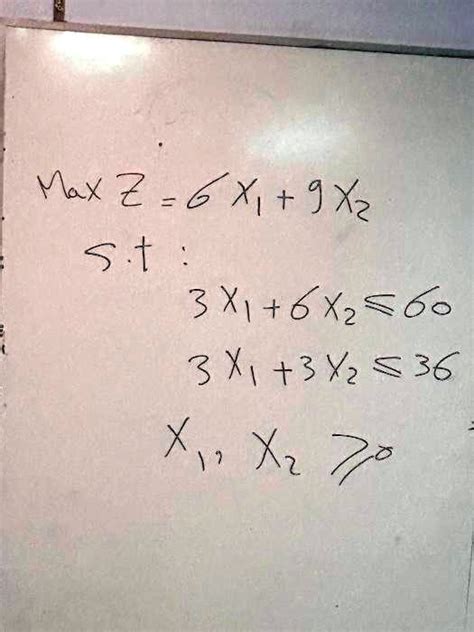 Max Z = 6 X₁ + 9 X₂
S.t :
3 X₁ + 6 X₂ ⩽ 60
3 X₁ + 3 X₂ ⩽ 36
X₁, X₂ ⩾ 0